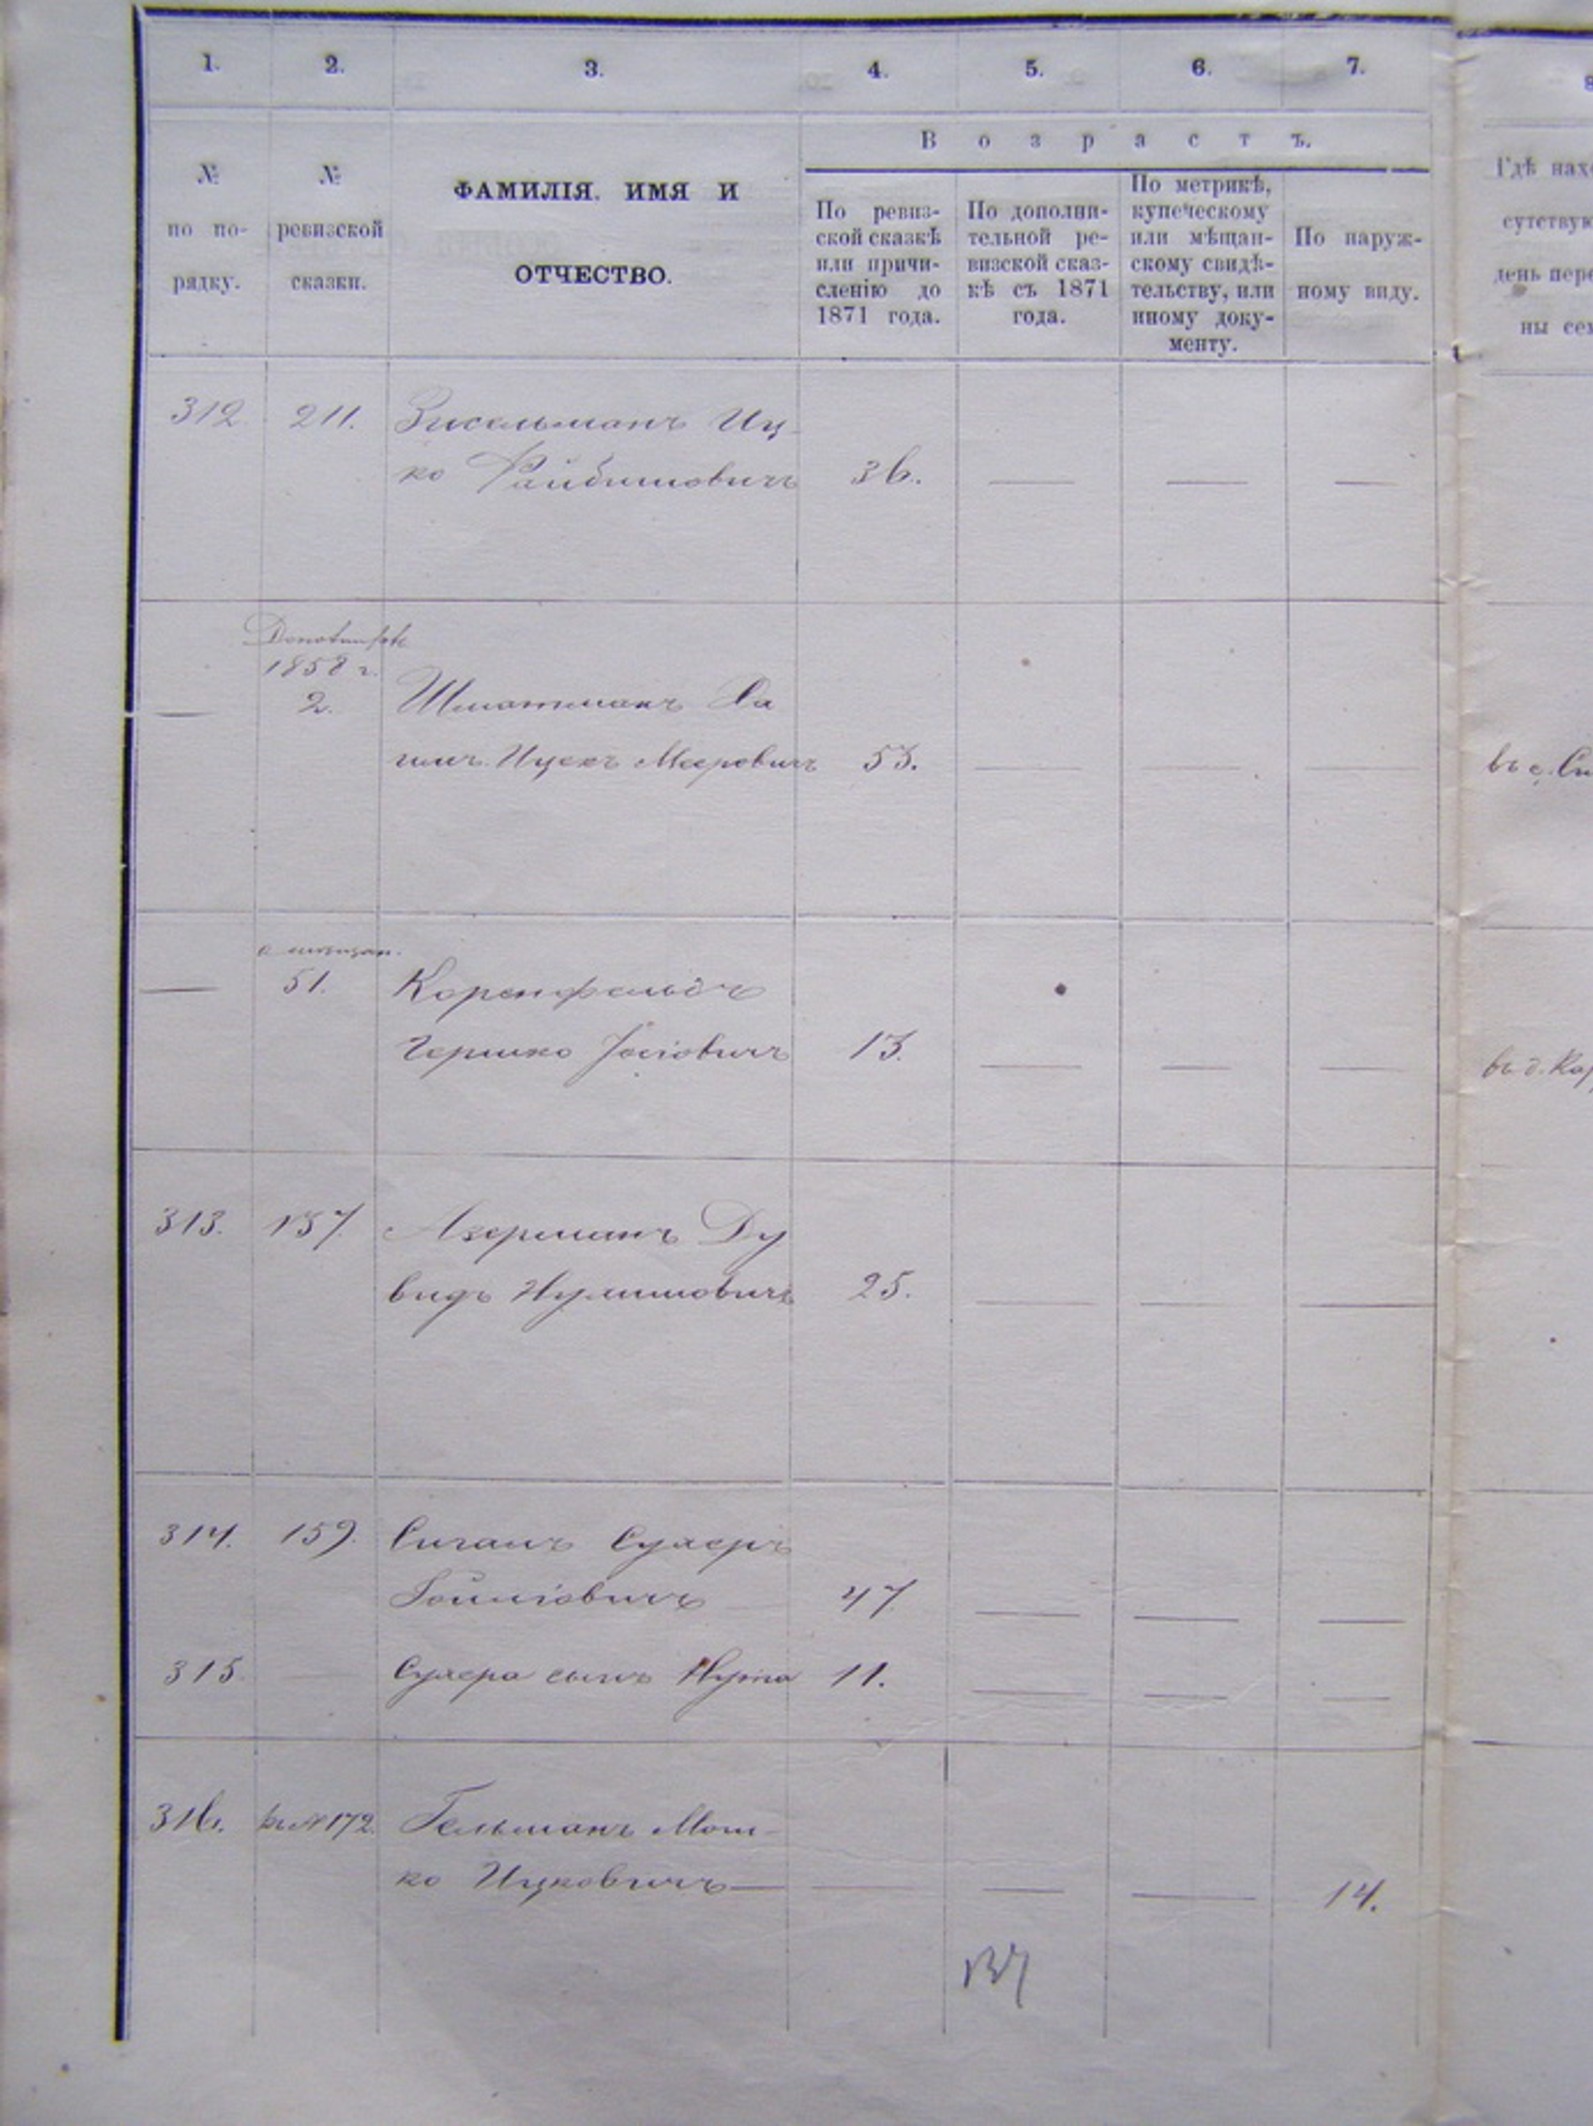 1. 2. 3. 4. 5. 6. 7.
Возрастъ.
№ по по-рядку.
№ ревизской сказки.
ФАМИЛІЯ. ИМЯ И
ОТЧЕСТВО.
По ревиз-
ской сказкѣ
или причи-
сленію до
1871 года.
По дополни-
тельной ре-
визской сказ-
кѣ съ 1871
года.
По метрикѣ,
купеческому
или мѣщан-
скому свидѣ-
тельству, или
иному доку-
менту.
По наруж-
ному виду.
312 211. Зисельманъ Иц-
ко 36. — — —
1858 г.
— 2. Шмотманъ
Ицекъ Мееровичъ 53. — — —
— 51. Коренфельдъ
Гершко Іосіовичъ 13. — — —
313. 137. Аксерманъ Ду
видъ 25. — — —
314. 159. Сиганъ Сухеръ
47 — — —
315 — Сухера сынъ 11. — — —
316. №172. Гельманъ Мош-
ко Ицковичъ — — — — 14.
137
Гдѣ нах
сутствую
день пере
ны сем
въ с.
въ д. Кар